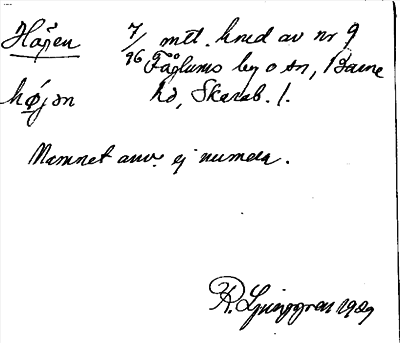 Höjen 7/96 mtl. hmd av nr 9
Fåglums by o sn, Barne
højən hd, Skarab. l.
Namnet anv. ej numera.
R. Ljunggren 1929